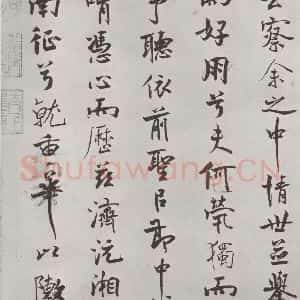 云察余之中情世並舉
而好朋兮夫何煢獨而
予聽依前聖㠯節中
喟憑心而歷茲濟沅湘
南征兮就重華以敶
Shufawang.CN